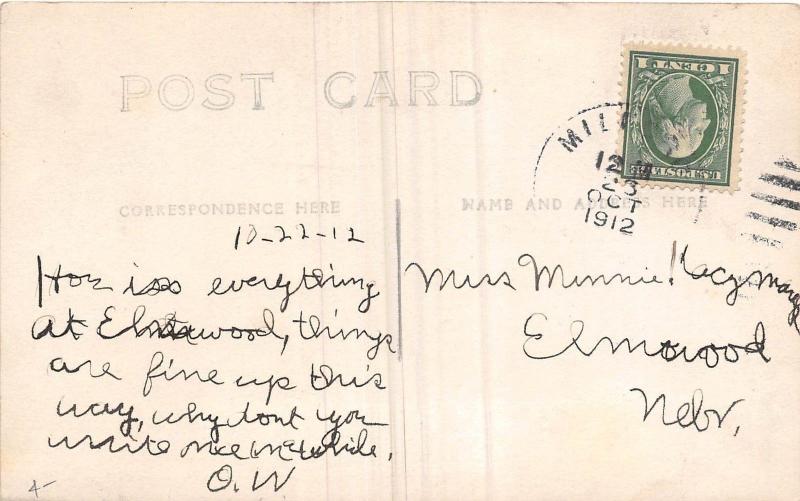 POST CARD
ONE CENT
U.S. POSTAGE
MIL
12 M
23
OCT
1912
CORRESPONDENCE HERE
NAME AND ADDRESS HERE
10-22-12
How is everything
at Elmwood, things
are fine up this
way, why dont you
write once in a while.
O.W
Miss Minnie
Elmwood
Nebr.
4-